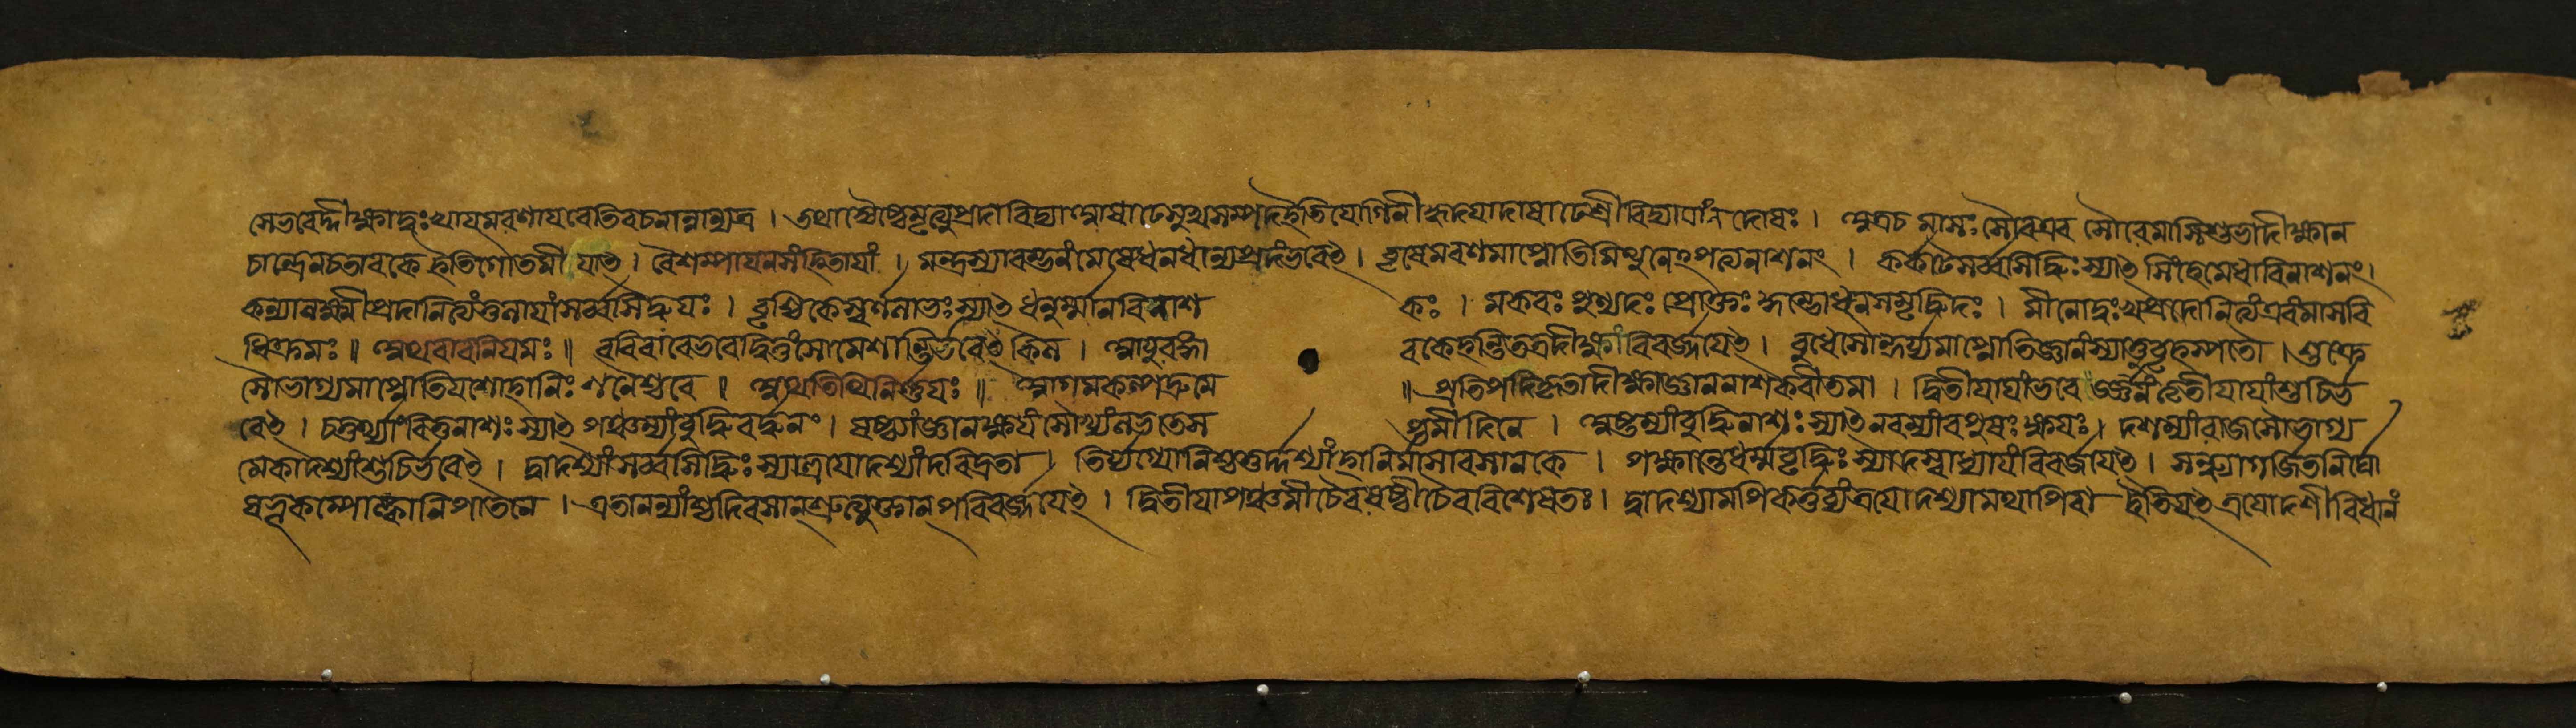 সেভবেদ্দীক্ষাদুঃখায়মরণায়বেতিবচনান্নান্যত্র । তথাচৈশ্বেমৃত্যুপ্রদাবিদ্যাআষাঢেসুখসম্পদইতিযোগিনীহৃদয়াদাষাঢেশ্রীবিদ্যায়াংনদোষঃ । অত্রচমাসঃসৌরএব সৌরেমাসিশুভাদীক্ষান
চান্দ্রেনচতারকে ইতিগোতমীয়াৎ । বৈশম্পায়নসংহিতায়াং । মন্ত্রস্যারম্ভনংমেষেধনধান্যপ্রদংভবেৎ । বৃষেমরণমাপ্নোতিমিথুনেহপত্যনাশনং । কর্কটেসর্ব্বসিদ্ধিঃস্যাৎসিংহেমেধাবিনাশনং।
কন্যালক্ষ্মীপ্রদানিত্যংতুলায়াংসর্ব্বসিদ্ধয়ঃ । বৃশ্চিকেস্বর্ণলাভঃস্যাৎধনুর্ম্মানবিনাশ কঃ । মকরঃপুণ্যদঃপ্রোক্তঃকুম্ভোধনসমৃদ্ধিদঃ । মীনোদুঃখপ্রদোনিত্যংএবংমাসবি
ধিক্রমঃ॥ অথবারনিয়মঃ॥ রবিবারেভবেদ্বিত্তংসোমেশান্তির্ভবেৎকিল । আয়ুরঙ্গা রকেহন্তিতত্রদীক্ষাংবিবর্জ্জয়েৎ । বুধেসৌন্দর্য্যমাপ্নোতিজ্ঞানংস্যাত্তুবৃহস্পতৌ । শুক্রে
সৌভাগ্যমাপ্নোতিযশোহানিঃশনৈশ্চরে । অথতিথিনির্ণ্ণয়ঃ॥ আগমকল্পদ্রুমে ॥ প্রতিপদিকৃতাদীক্ষাজ্ঞাননাশকরীতমা । দ্বিতীয়ায়াংভবেজ্জ্ঞানংতৃতীয়ায়াংশুচির্ভ
বেৎ । চতুর্থ্যাংবিত্তনাশঃস্যাৎপঞ্চম্যাংবুদ্ধিবর্দ্ধনং । ষষ্ঠ্যাংজ্ঞানক্ষয়ংসৌখ্যংলভতেস প্তমীদিনে । অষ্টম্যাংবুদ্ধিনাশঃস্যাৎনবম্যাংবপুষঃক্ষয়ঃ। দশম্যাংরাজসৌভাগ্য
মেকাদশ্যাংশুচির্ভবেৎ । দ্বাদশ্যাংসর্ব্বসিদ্ধিঃস্যাত্ত্রয়োদশ্যাংদরিদ্রতা । তির্য্যগ্যোনিশ্চতুর্দ্দশ্যাংহানির্মাসাবসানকে । পক্ষান্তেধর্ম্মবৃদ্ধিঃস্যাদস্বাধ্যায়ংবিবর্জয়েৎ । সন্ধ্যাগর্জিতনির্ঘো
ষভূকম্পোল্কানিপাতনে । এতানন্যাংশ্চদিবসান্শ্রুত্যুক্তান্পরিবর্জ্জয়েৎ । দ্বিতীয়াপঞ্চমীচৈবষষ্ঠীচৈববিশেষতঃ। দ্বাদশ্যামপিকর্ত্তব্যংত্রয়োদশ্যামথাপিবা ইতিযৎত্রয়োদশীবিধানং